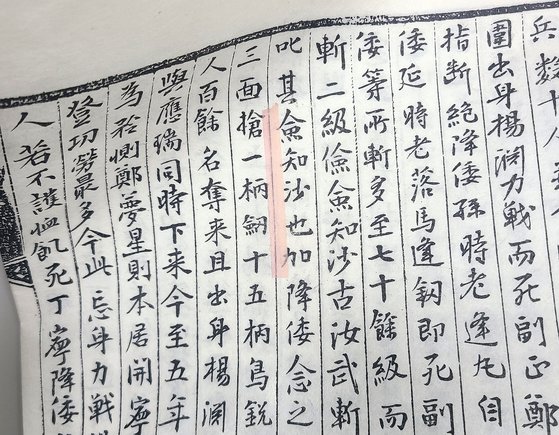 兵数十
圍出身楊渊力戰而死副正鄭
指断絶降倭孫時老逢丸
倭延時老落馬逢釼即死副
倭等所斬多至七十餘級而
斬二級儉僉知沙古汝武斬
叱其僉知沙也加降倭念之
三面槍一柄釼十五柄鳥銃
人百餘名奪来且出身楊渊
與應瑞同時下来今至五年
為矜惻鄭夢星則本居開寧
登功勞最多今此忘身力戦
人若不護恤飢死丁寧降倭